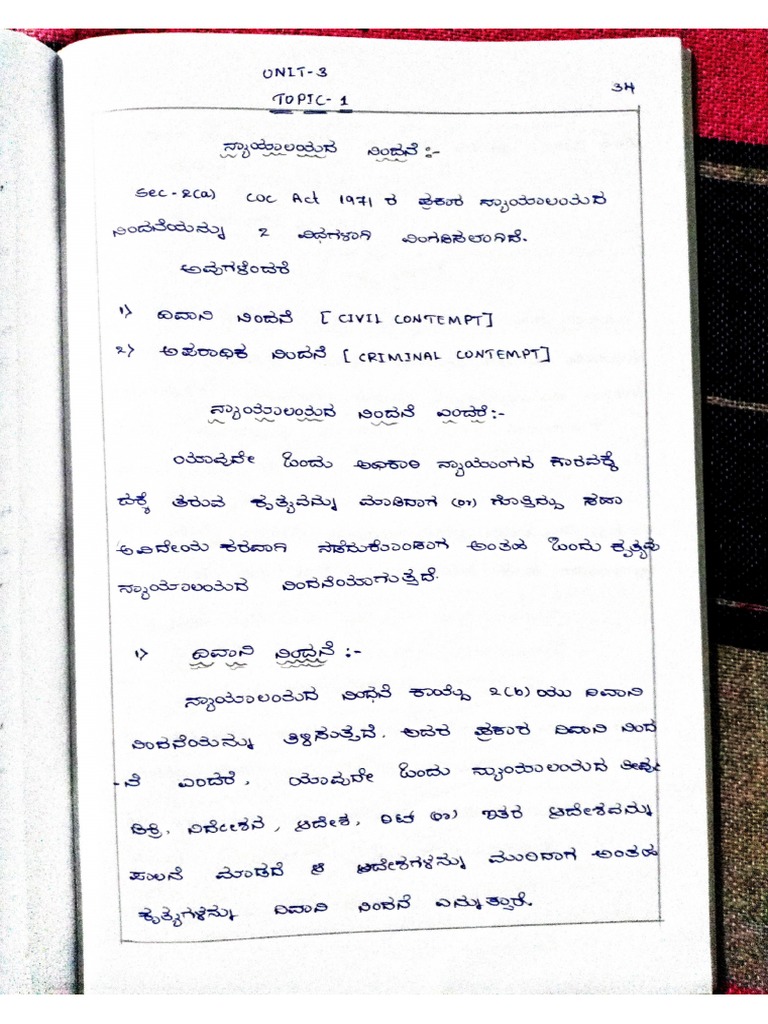 UNIT-3
34
TOPIC-1
ನ್ಯಾಯಾಲಯದ ನಿಂದನೆ :-
Sec-2(a) COC Act 1971 ರ ಪ್ರಕಾರ ನ್ಯಾಯಾಲಯದ
ನಿಂದನೆಯನ್ನು 2 ವಿಧಗಳಾಗಿ ವಿಂಗಡಿಸಲಾಗಿದೆ.
ಅವುಗಳೆಂದರೆ
1) ದಿವಾನಿ ನಿಂದನೆ [CIVIL CONTEMPT]
2) ಅಪರಾಧಿಕ ನಿಂದನೆ [CRIMINAL CONTEMPT]
ನ್ಯಾಯಾಲಯದ ನಿಂದನೆ ಎಂದರೆ :-
ಯಾವುದೇ ಒಂದು ಅಧಿಕಾರಿ ನ್ಯಾಯಾಂಗದ ಗೌರವಕ್ಕೆ
ಧಕ್ಕೆ ತರುವ ಕೃತ್ಯವನ್ನು ಮಾಡಿದಾಗ (or) ಗೊತ್ತಿದ್ದು ಸಹಾ
ಅವಿಧೇಯಕರವಾಗಿ ನಡೆದುಕೊಂಡಾಗ ಅಂತಹ ಒಂದು ಕೃತ್ಯವು
ನ್ಯಾಯಾಲಯದ ನಿಂದನೆಯಾಗುತ್ತದೆ.
1) ದಿವಾನಿ ನಿಂದನೆ :-
ನ್ಯಾಯಾಲಯದ ನಿಂಧನೆ ಕಾಯ್ದೆ 2(b) ಯು ದಿವಾನಿ
ನಿಂದನೆಯನ್ನು ತಿಳಿಸುತ್ತದೆ. ಅದರ ಪ್ರಕಾರ ದಿವಾನಿ ನಿಂದ
-ನೆ ಎಂದರೆ, ಯಾವುದೇ ಒಂದು ನ್ಯಾಯಾಲಯದ ತೀರ್ಪು
ಡಿಕ್ರಿ, ನಿರ್ದೇಶನ, ಆದೇಶ, ರಿಟ್ (or) ಇತರ ಆದೇಶವನ್ನು
ಪಾಲನೆ ಮಾಡದೆ ಆ ಆದೇಶಗಳನ್ನು ಮುರಿದಾಗ ಅಂತಹ
ಕೃತ್ಯಗಳನ್ನು ದಿವಾನಿ ನಿಂದನೆ ಎನ್ನುತ್ತಾರೆ.